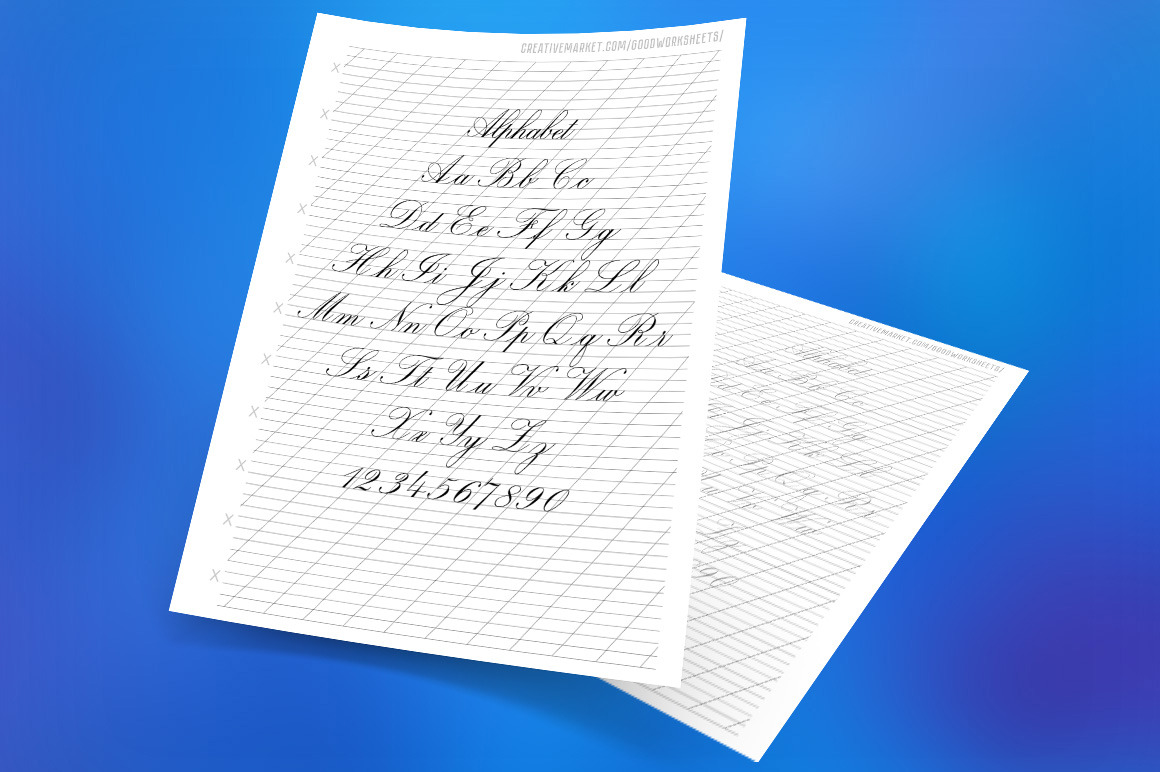 CREATIVEMARKET.COM/GOODWORKSHEETS/
x
x
Alphabet
x
Aa Bb Cc
x
Dd Ee Ff Gg
x
Hh Ii Jj Kk Ll
x
Mm Nn Oo Pp Qq Rr
x
Ss Tt Uu Vv Ww
x
Xx Yy Zz
x
1234567890
x
x
CREATIVEMARKET.COM/GOODWORKSHEETS/
Alphabet